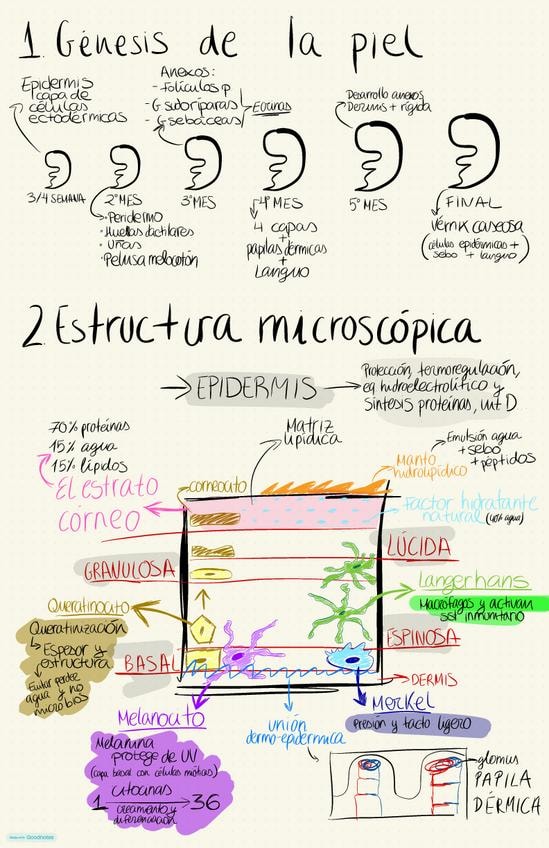 1. Génesis de la piel
Epidermis
capa de
células
ectodérmicas
Anexos:
- Folículos p
- G sudoríparas
- G sebáceas
Ecrinas
Desarrollo anexos
Dermis + rígida
3/4 SEMANA
2º MES
3º MES
4º MES
5º MES
FINAL
· Peridermo
· Huellas dactilares
· Uñas
· Pelusa melocotón
4 capas
+
papilas dérmicas
+
Languo
Vérnix caseosa
(células epidérmicas +
sebo + languo)
2. Estructura microscópica
→ EPIDERMIS →
Protección, termoregulación,
eq hidroelectrolítico y
síntesis proteínas, vit D
70% proteínas
15% agua
15% lípidos
El estrato
córneo
Matriz
lipídica
Emulsión agua
+ sebo
+ péptidos
Manto
hidrolipídico
corneocito
Factor hidratante
natural (40% agua)
LÚCIDA
GRANULOSA
Langerhans
Macrófagos y activan
sst inmunitario
Queratinocito
Queratinización
↳ Espesor y
estructura
Evitar perder
agua y no
microbios
ESPINOSA
BASAL
→ DERMIS
Melanocito
unión
dermo-epidérmica
Merkel
Presión y tacto ligero
Melanina
protege de UV
(capa basal con células mitóticas)
1 → 36
crecimiento y
diferenciación
glomus
PAPILA
DÉRMICA
Made with Goodnotes